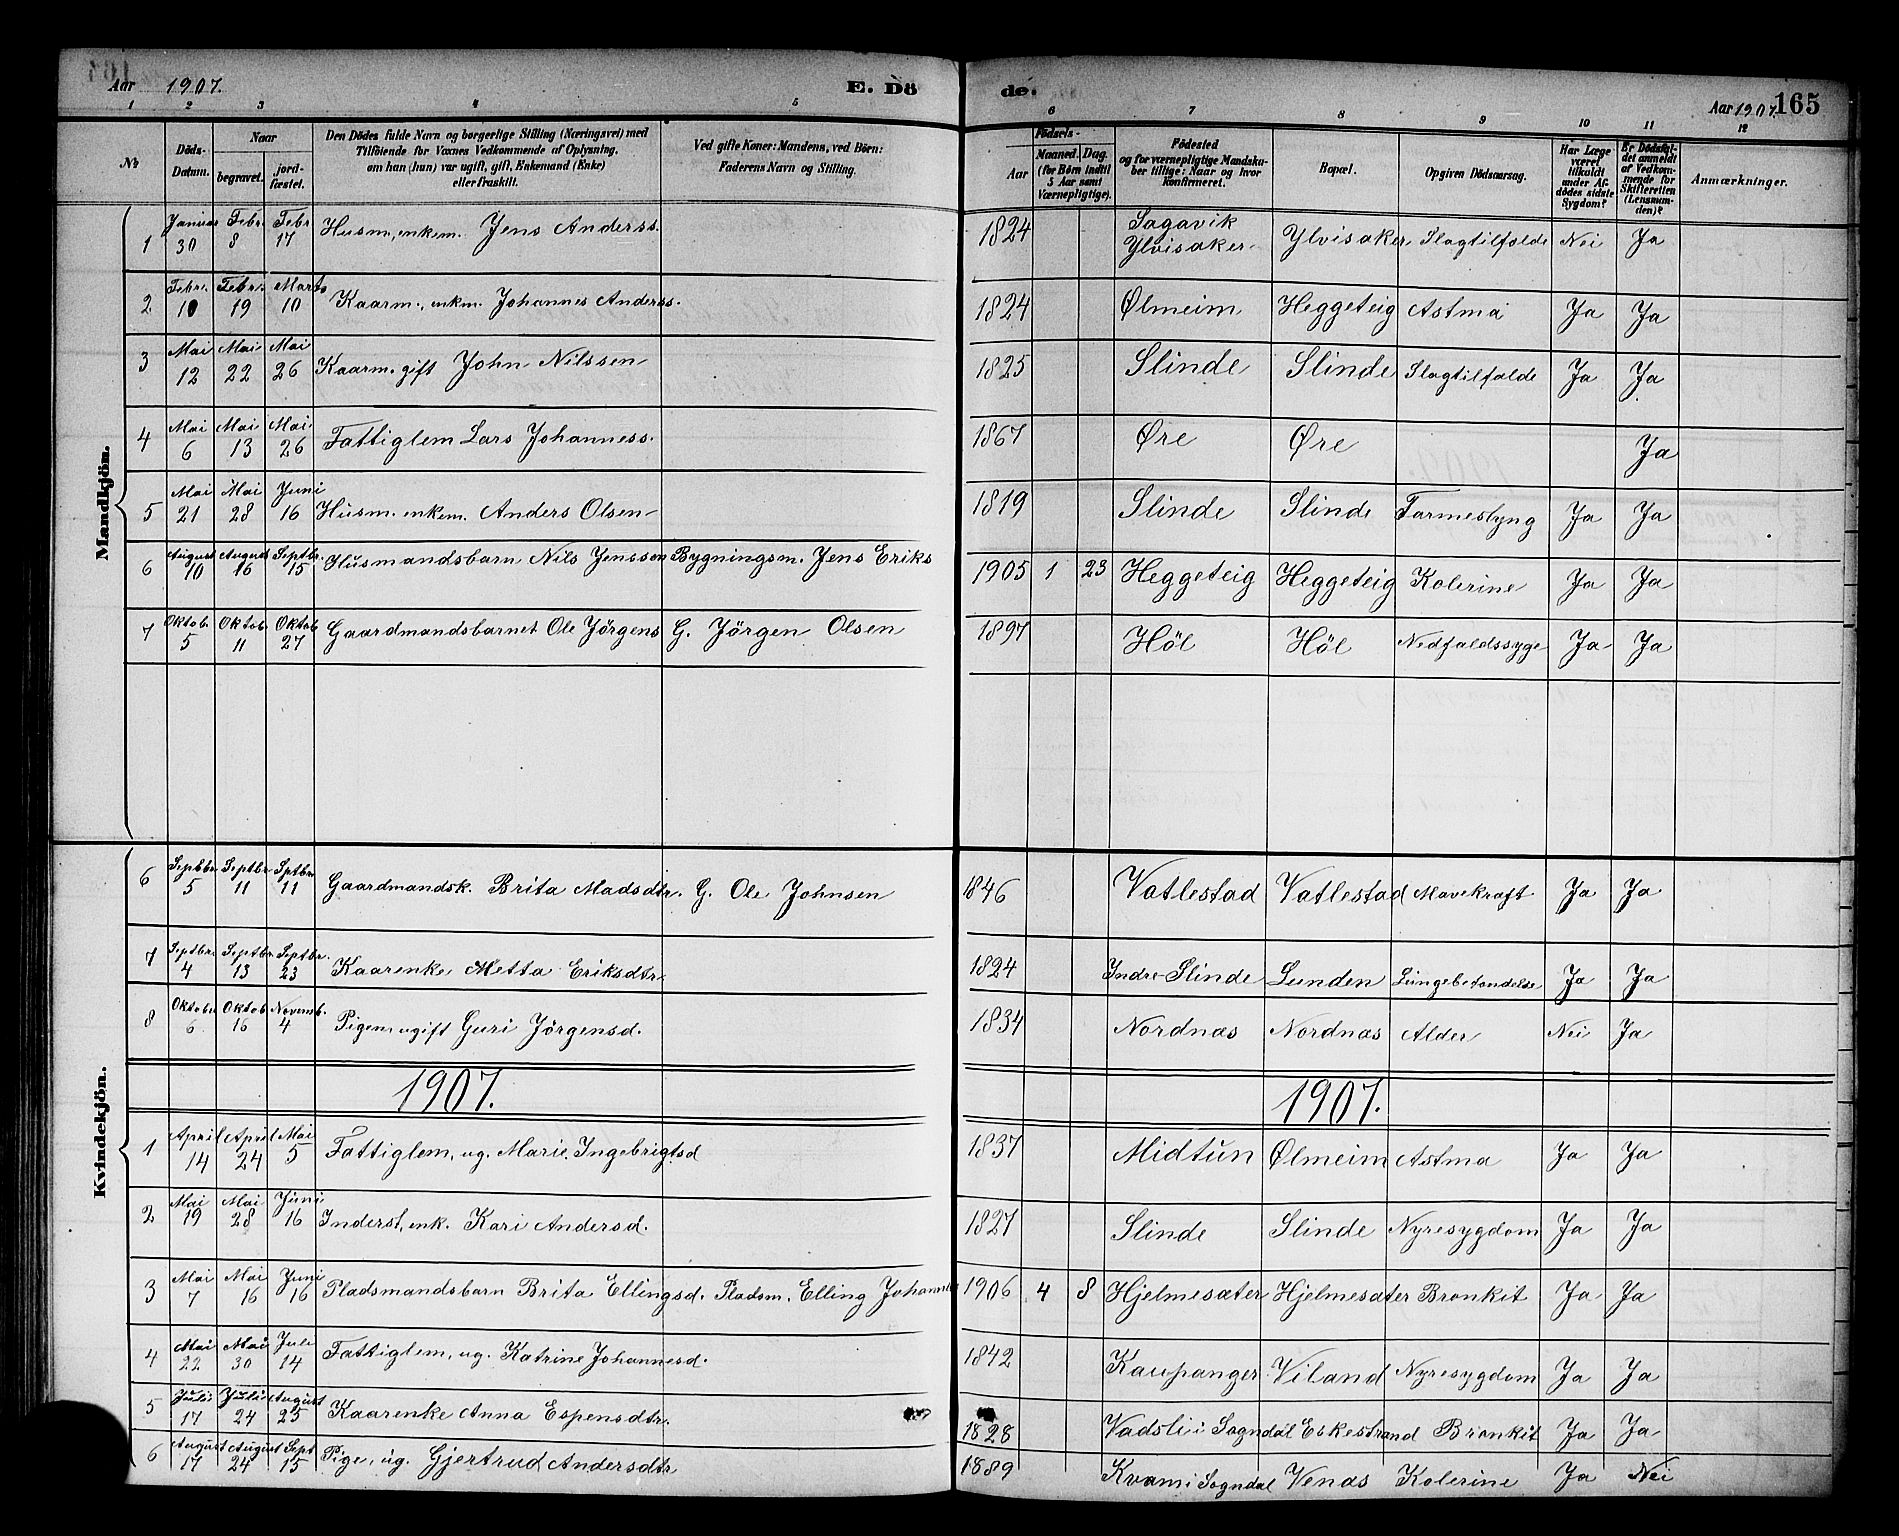 Aar 1907. E. Dö de. Aar 1907. 165
1 2 3 4 5 6 7 8 9 10 11 12
No Döds-Datum. Naar begravet. jordfæstet. Den Dödes fulde Navn og borgerlige Stilling (Næringsvei) med Tilföiende for Voxnes Vedkommende af Oplysning, om han (hun) var ugift, gift, Enkemand (Enke) eller fraskilt. Ved gifte Koner: Mandens, ved Börn: Faderens Navn og Stilling. Födsels- Aar Maaned. Dag. (for Börn indtil 5 Aar samt Værnepligtige). Födested og for værnepligtige Mandskuber tillige: Naar og hvor Konfirmeret. Bopæl. Opgiven Dödsaarsag. Har Læge været tilkaldt under Afdödes sidste Sygdom? Er Dödsfaldet anmeldt af Vedkommende for Skifteretten (Lensmanden)? Anmærkninger.
Mandkjön.
1 Januar 30 Febr. 8 Febr 17 Husm., enkem. Jens Anderss. 1824 Sagavik Ylvisaker Ylvisaker Slagtilfælde Nei Ja
2 Febr. 10 Febr. 19 Marts 10 Kaarm., enkm. Johannes Anderss. 1824 Ølmeim Heggeteig Astma Ja Ja
3 Mai 12 Mai 22 Mai 26 Kaarm. gift John Nilssen 1825 Slinde Slinde Slagtilfælde Ja Ja
4 Mai 6 Mai 13 Mai 26 Fattiglem Lars Johanness. 1867 Øre Øre Ja
5 Mai 21 Mai 28 Juni 16 Husm. enkem. Anders Olsen 1819 Slinde Slinde Tarmeslyng Ja Ja
6 August 10 August 16 Septbr. 15 Husmandsbarn Nils Jenssen Bygningsm. Jens Eriks 1905 1 23 Heggeteig Heggeteig Kolerine Ja Ja
7 Oktob. 5 Oktob. 11 Oktob 27 Gaardmandsbarnet Ole Jörgens G. Jörgen Olsen 1897 Höl Höl Nedfaldssyge Ja Ja
Kvindekjön.
6 Septbr 5 Septbr 11 Sptbr. 11 Gaardmandsk. Brita Madsdtr. G. Ole Johnsen 1846 Vatlestad Vatlestad Mavekræft Ja Ja
7 Septbr. 4 Septbr. 13 Septbr. 23 Kaarenke Metta Eriksdtr. 1824 Indre Slinde Lunden Lungebetændelse Ja Ja
8 Oktober 6 Oktob. 16 Novemb. 4 Pigen ugift Guri Jörgensd. 1834 Nordnæs Nordnæs Alder Nei Ja
1907. 1907.
1 April 14 April 24 Mai 5 Fattiglem, ug. Marie Ingebrigtsd 1837 Midtun Ølmeim Astma Ja Ja
2 Mai 19 Mai 28 Juni 16 Inderst, enk. Kari Andersd. 1827 Slinde Slinde Nyresygdom Ja Ja
3 Mai 7 Mai 16 Juni 16 Pladsmandsbarn Brita Ellingsd. Pladsm. Elling Johannes 1906 4 8 Hjelmesæter Hjelmesæter Bronkit Ja Ja
4 Mai 22 Mai 30 Juli 14 Fattiglem, ug. Katrine Johannesd. 1842 Kaupanger Viland Nyresygdom Ja Ja
5 Juli 17 Juli 24 August 25 Kaarenke Anna Espensdtr. 1828 Vadsli i Sogndal Eskestrand Bronkit Ja Ja
6 August 17 August 24 Sept 15 Pige, ug. Gjertrud Andersdtr 1889 Kvam i Sogndal Venæs Kolerine Ja Nei